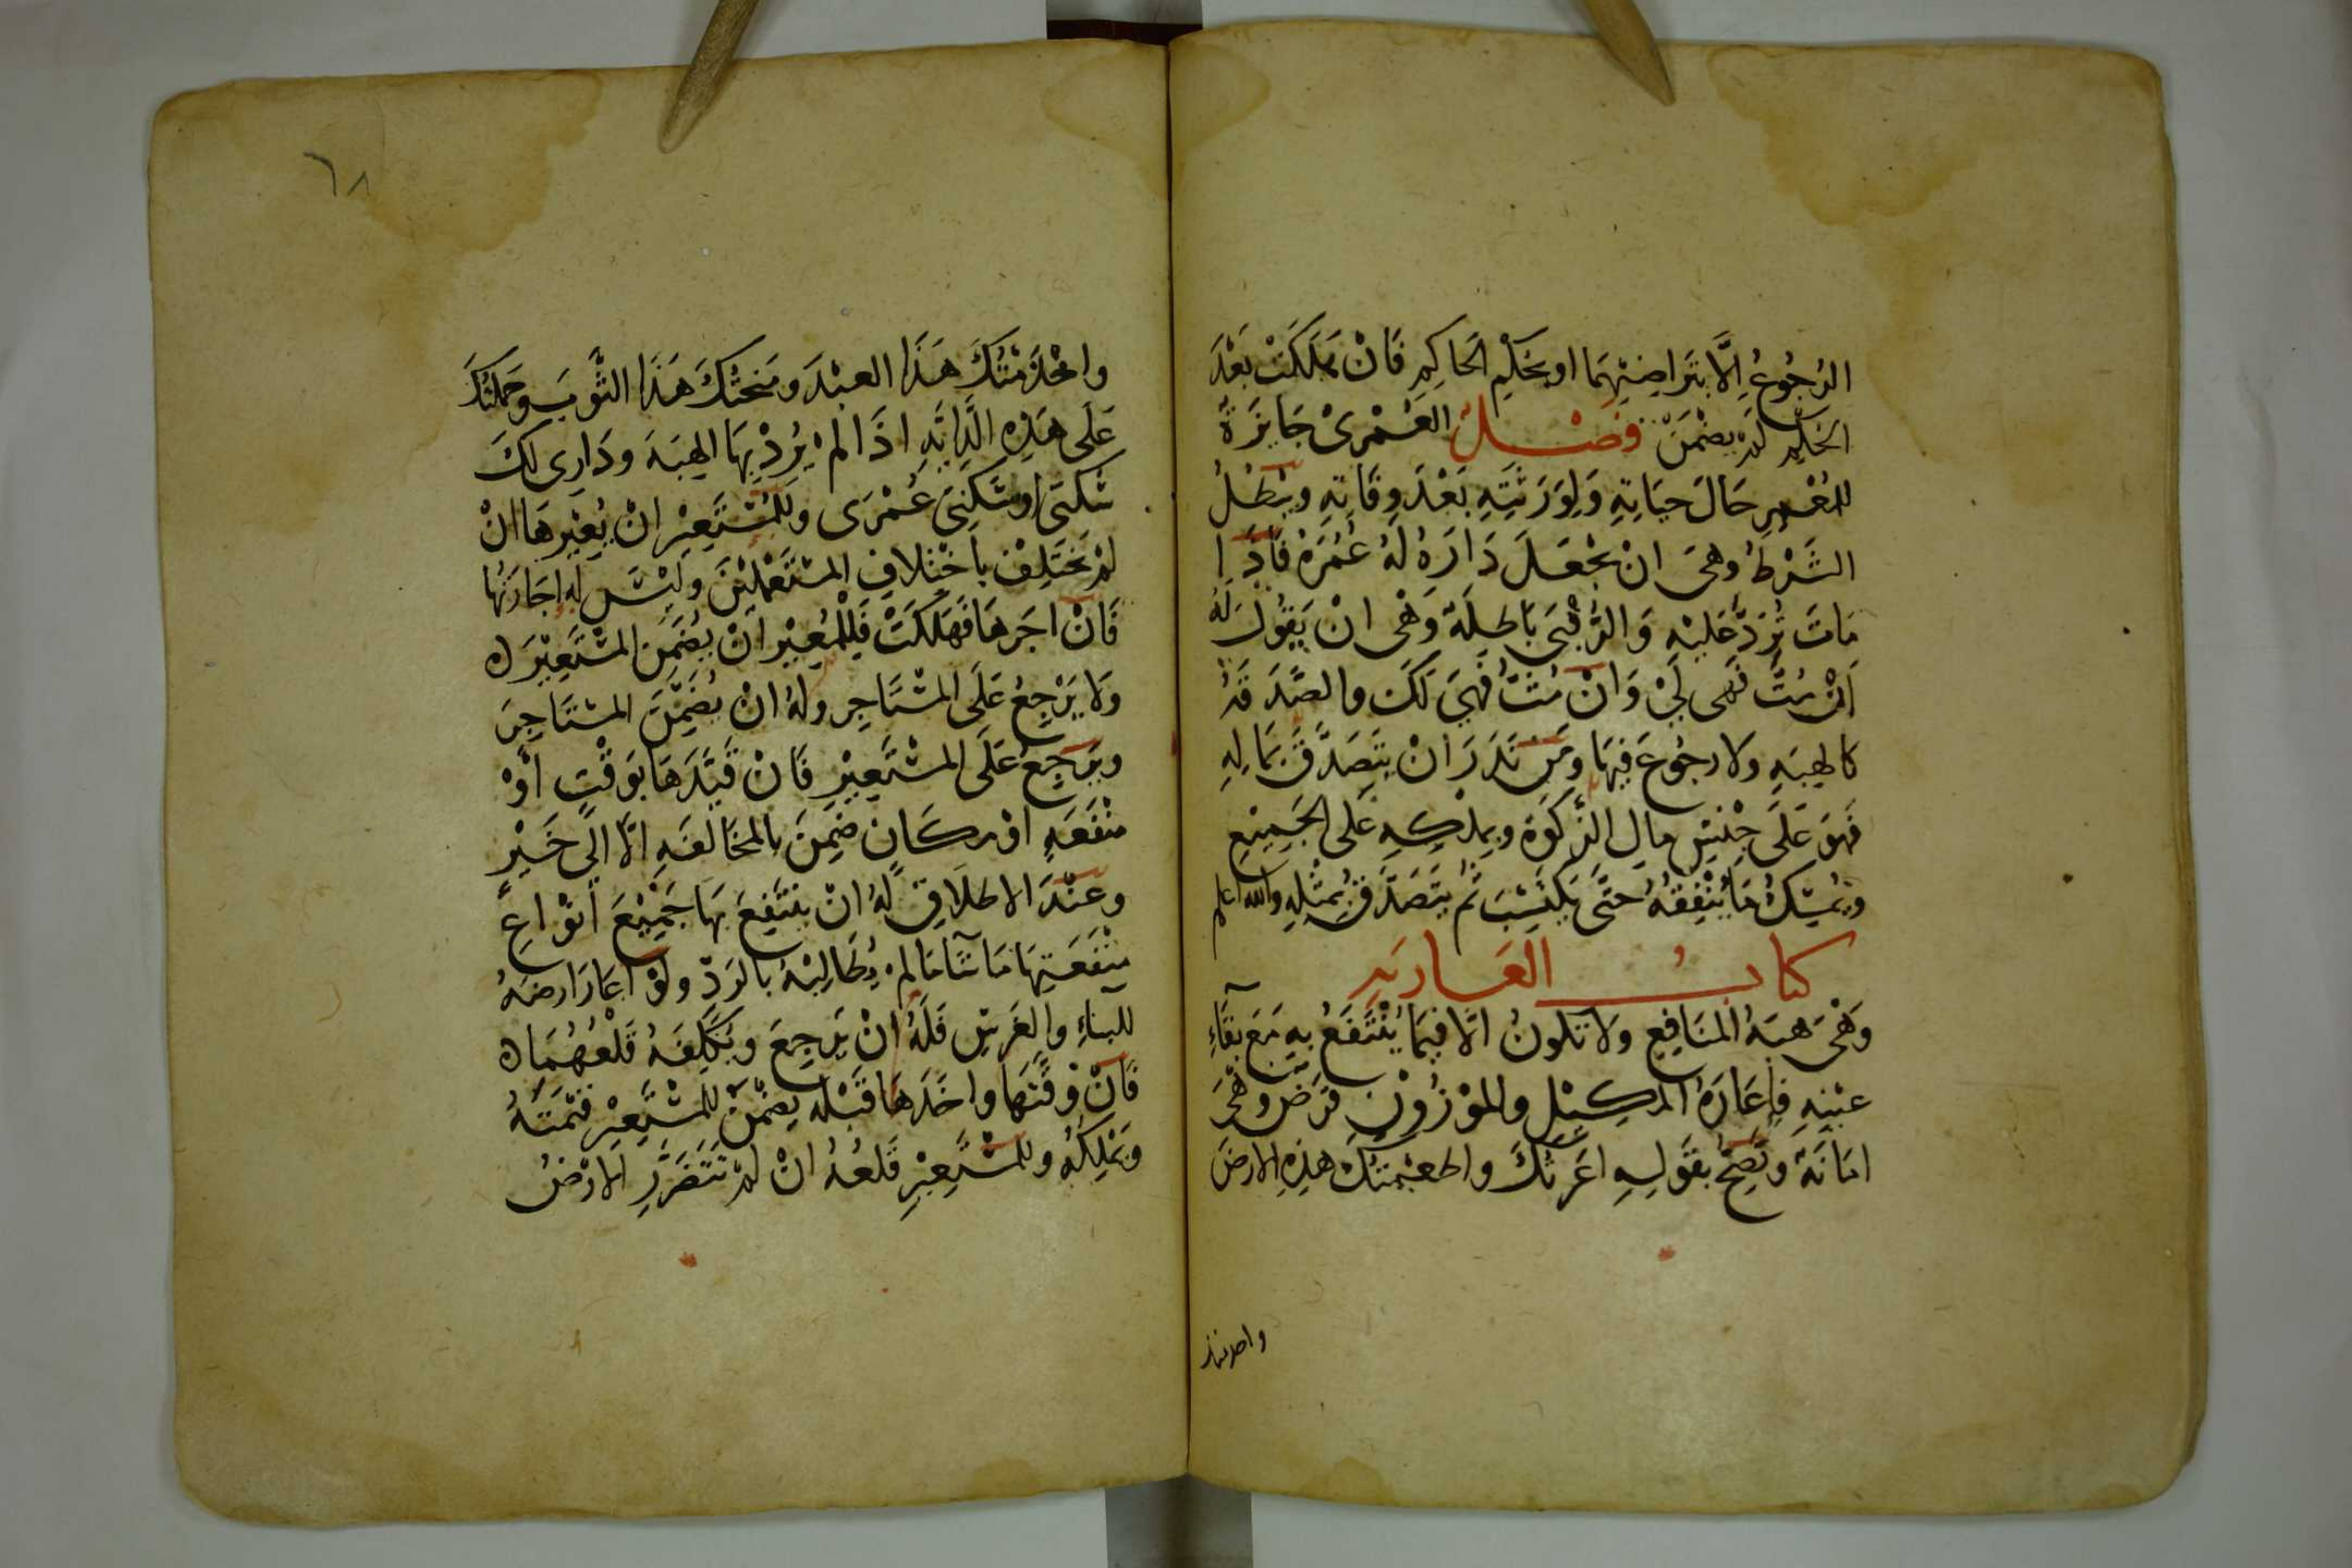 الرُجُوعُ اِلَّا بتَراضيْهِمَا او بحكْمِ الحَاكِمِ فَانْ هَلَكَتْ بَعْدَ
الحكْمِ لمْ يضمَنْ فصْــل العُمْرىْ جَايزَةٌ
للمُعْمرِ حَالَ حيَاتِهِ وَلِوَرَثَتِهِ بَعْدَ وفَاتِهِ ويَبْطلُ
الشَرْطُ وهىَ انْ يجْعَلَ دَارَهُ لهُ عُمُرَهُ فَاذَا
مَاتَ تُرَدُّ عَليْهِ وَالرُّقْبَى بَاطِلَةٌ وَهْىَ انْ يَقُولَ لَهُ
اِنْ مُتَّ فَهى لِىْ وَانْ مُتُّ فَهِيَ لَكَ والصَّدَقَهُ
كالهِبَهِ ولا رجُوعَ فِيهَا ومَنْ نَذَرَ انْ يتَصَدَّقَ بمَالِهِ
فَهوَ عَلَى جِنْسِ مالِ الزَّكوَةِ وبِملْكِهِ عَلَى الجَمِيْعِ
ويُمْسِكُ مَا يُنْفِقُهُ حتَّى يَكتَسِبَ ثُمَّ يتَصَدَّقُ بمِثْلِهِ والله اعلم
كتابُ العَاريَه
وَهْىَ هبَةُ المنَافِعِ ولا تكونُ الّا فِيمَا يُنْتَفَعُ بهِ مَعَ بقَآءِ
عيْنِهِ فاِعَارَةُ المكِيْلِ والموْزُوْنِ قرْضٌ وهْىَ
امَانَةٌ وتَصِحُّ بقَولِهِ اعَرْتُكَ واطعَمْتكَ هذِهِ الارضَ
واخدمتك
٦٨
واخْدَمْتُكَ هَذَا العبْدَ ومَنحتُكَ هَذَا الثَّوبَ وحَمَلتُكَ
عَلَى هَذِهِ الدَّابَّهِ اذَا لمْ يُرِدْ بِهَا الهِبَةَ ودَارِى لكَ
سُكنَى اوسُكنَى عُمْرَى وَللمُسْتَعِيْرِ انْ يُعِيْرهَا انْ
لمْ يَخْتَلِفْ باخْتِلافِ المسْتَعْمِلِيْنَ ولَيْسَ له اِجَارَتُهَا
فَانْ اجَرهَا فَهَلَكَتْ فَلِلْمُعِيْرِ انْ يُضَمِّنَ المسْتَعِيْرَ ه
وَلا يَرْجِعُ عَلَى المسْتَاجِرِ ولهُ انْ يُضَمِّنَ المستَاجِرَ
ويَرجِعُ عَلَى المسْتَعِيْرِ فَانْ قَيَّدَهَا بوَقْتٍ أَوْ
منْفَعَهٍ اوْ مكَانٍ ضَمِنَ بالمخَالَفَهِ الّا الَى خَيْرٍ
وعنْدَ الاطلَاقِ لهُ انْ ينتَفِعَ بِهَا جَمِيْعَ انوَاعِ
منْفَعَتِهَا مَا شَآ مَا لمْ يُطَالِبْهُ بالرَدِّ ولَوْ اعَارَ ارضهُ
للبناءِ والغَرسِ فَلَهُ انْ يَرجِعَ ويُكَلِّفَهُ قَلْعَهُمَا ه
فَانْ وقَّتهَا واخَذَهَا قَبْلَه يضمَنُ للمسْتَعِيْرِ قيْمَتَهُ
ويَمْلِكُهُ وللمستَعِيْرِ قَلعُهُ انْ لمْ تَتَضَرَّرِ الارْضُ